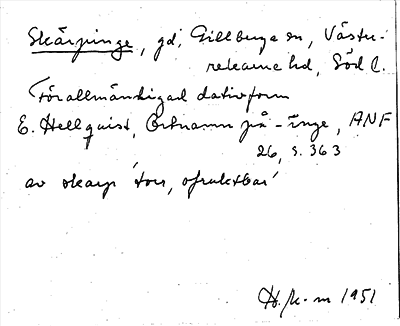 Skärpinge, gd, Gillberga sn, Väster-
rekarne hd, Södl.
Förallmänligad dativform
E. Hellquist, Ortnamn på -inge, ANF
26, s. 363
av skarp 'torr, ofruktbar'
H. K-m 1951